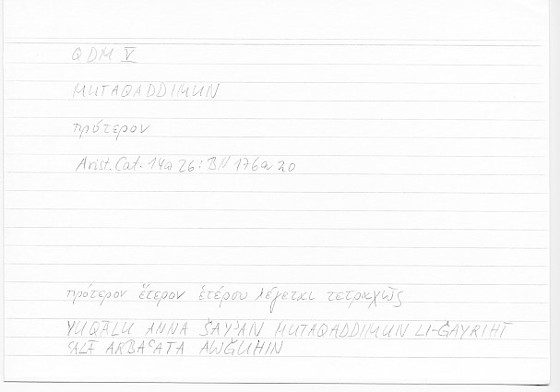 QDM V
MUTAQADDIMUN
πρότερον
Arist. Cat. 14a 26 : BN 176a 20
πρότερον ἕτερον ἑτέρου λέγεται τετραχῶς
YUQĀLU ANNA ŠAYʾAN MUTAQADDIMUN LI-ĠAYRIHĪ
ʿALĀ ARBAʿATA AWǦUHIN